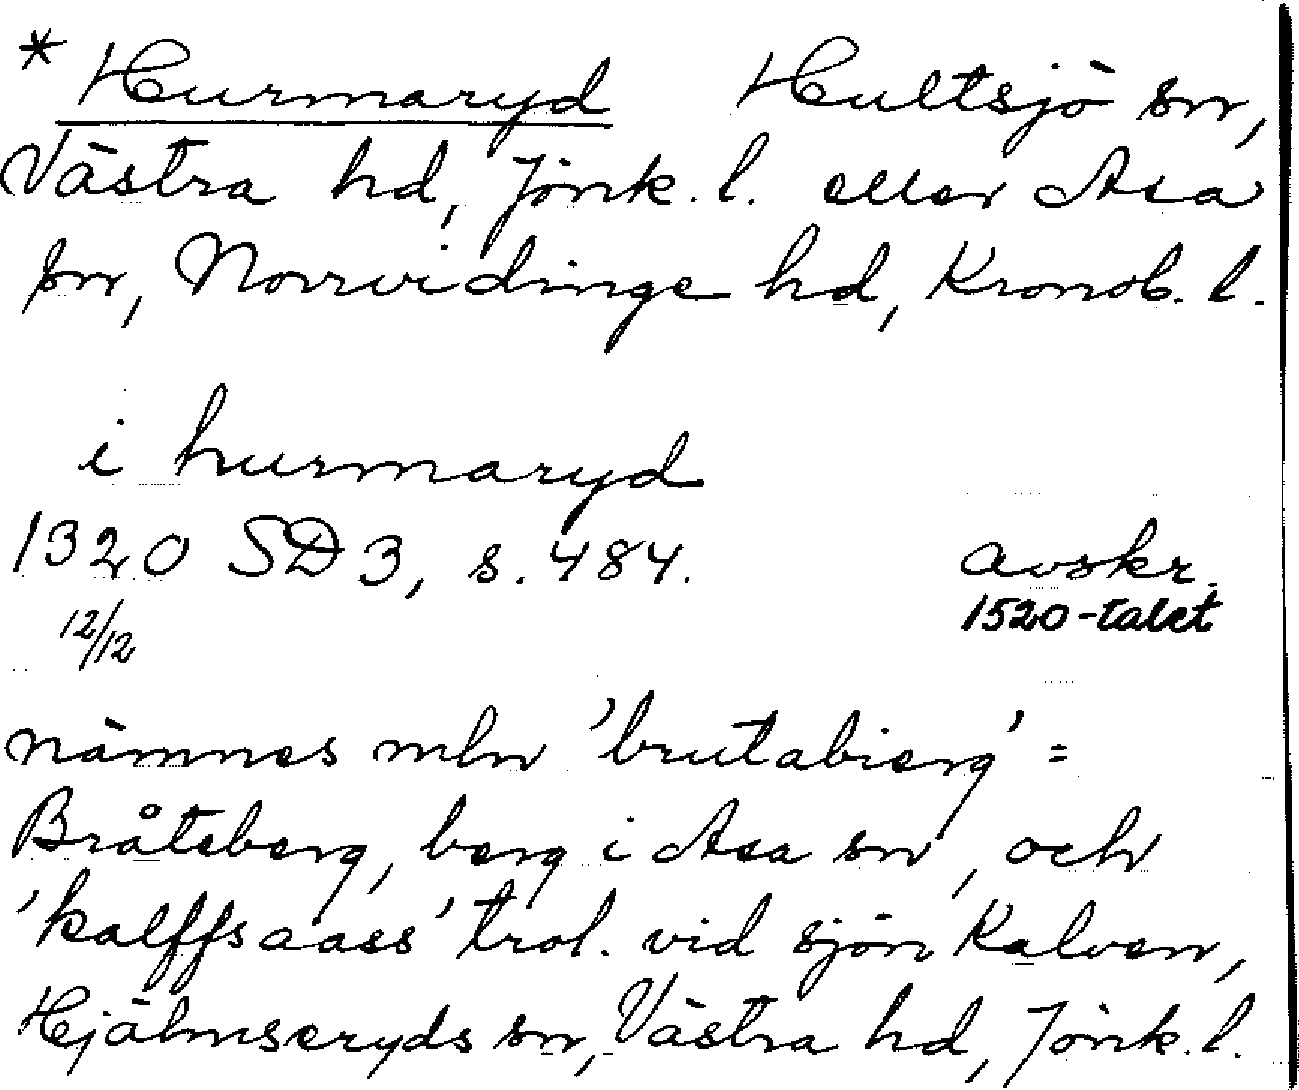 * Hurmaryd Hultsjö sn,
Västra hd, Jönk. l. eller Asa
sn, Norrvidinge hd, Kronob. l.
i hurmaryd
1320 SD 3, s. 484. avskr.
12/12 1520-talet
nämnes mln 'brutabierg' =
Bråteberg, berg i Asa sn, och
'kalffsaass' trol. vid sjön Kalven,
Hjälmseryds sn, Västra hd, Jönk. l.